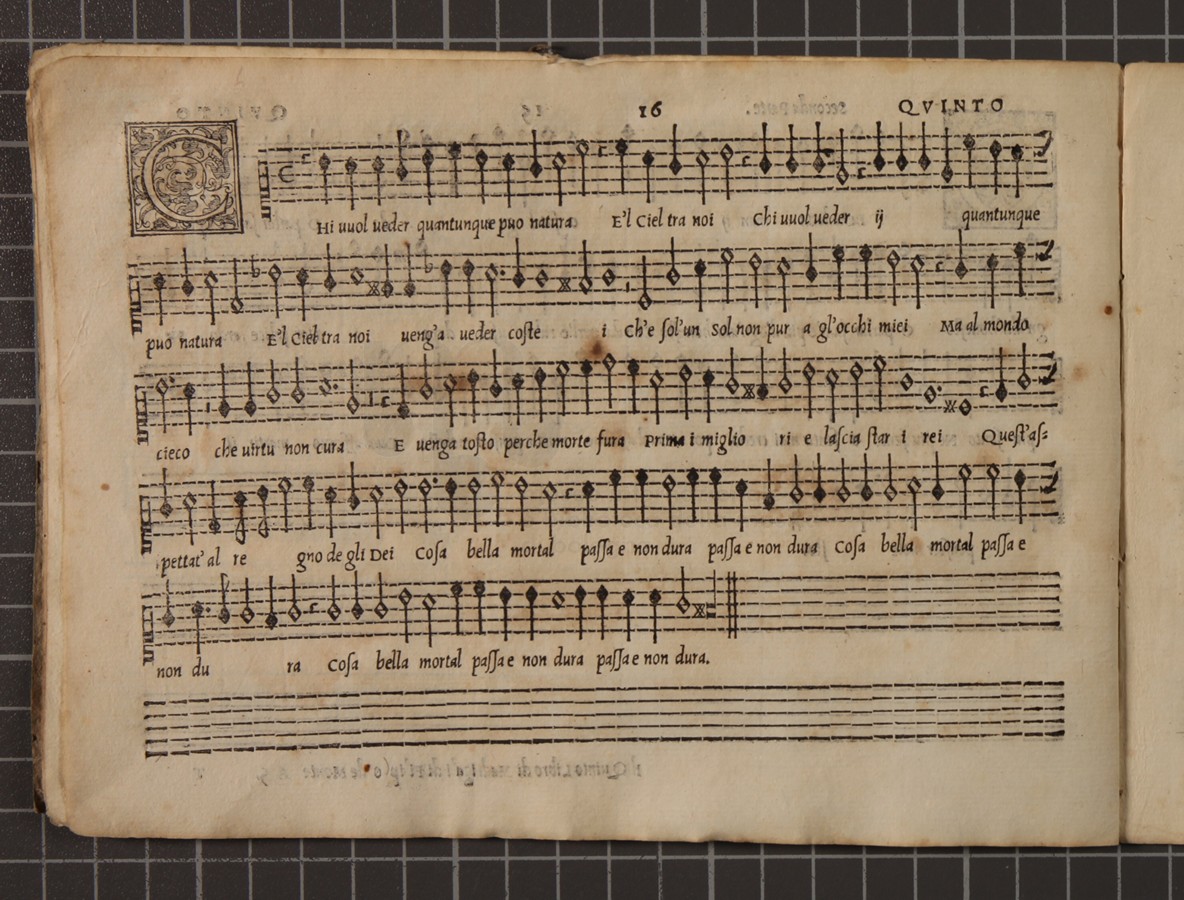 16 QVINTO
C Hi uuol ueder quantunque puo natura E'l Ciel tra noi Chi uuol ueder ij quantunque
puo natura E'l Ciel tra noi ueng'a ueder coſte i Ch'e ſol'un Sol non pur a gl'occhi miei Ma al mondo
cieco che uirtu non cura E uenga toſto perche morte fura Prima i miglio ri e laſcia ſtar i rei Queſt'aſ=
pettat' al re gno de gli Dei Coſa bella mortal paſſa e non dura paſſa e non dura Coſa bella mortal paſſa e
non du ra Coſa bella mortal paſſa e non dura paſſa e non dura.